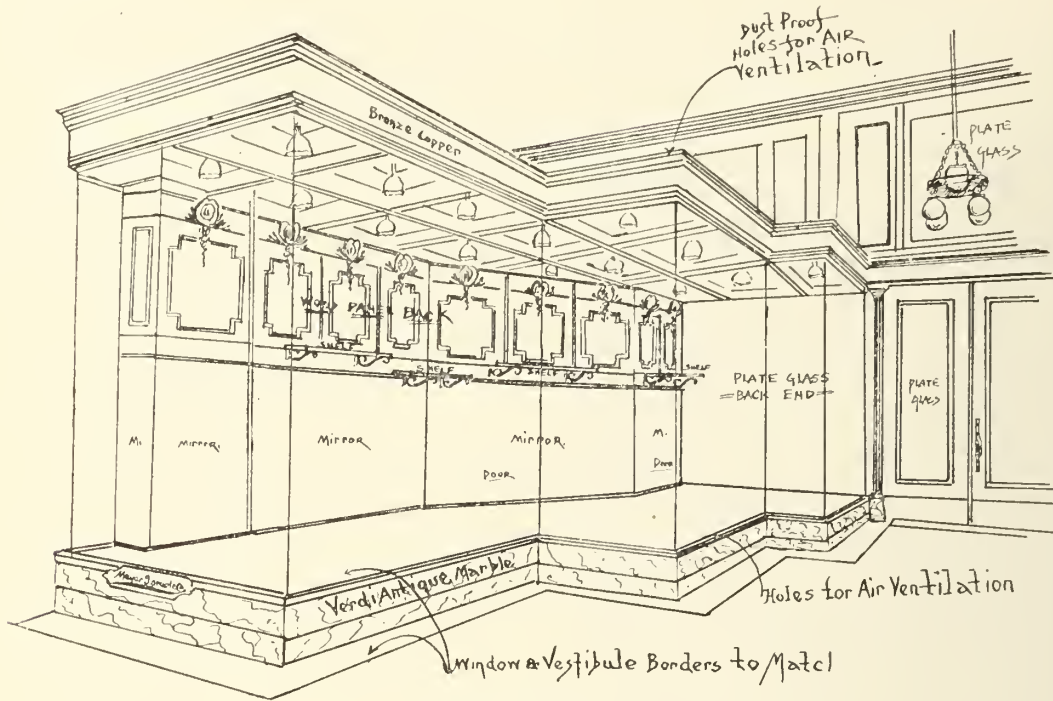 Dust Proof
Holes for Air
Ventilation
Bronze Copper
PLATE
GLASS
WOOD PANEL BACK
SHELF
SHELF
SHELF
SHELF
PLATE GLASS
=BACK END=
PLATE
GLASS
M.
Mirror.
Mirror
Mirror.
M.
Door
Door
Verdi Antique Marble
Holes for Air Ventilation
Window & Vestibule Borders to Matcl